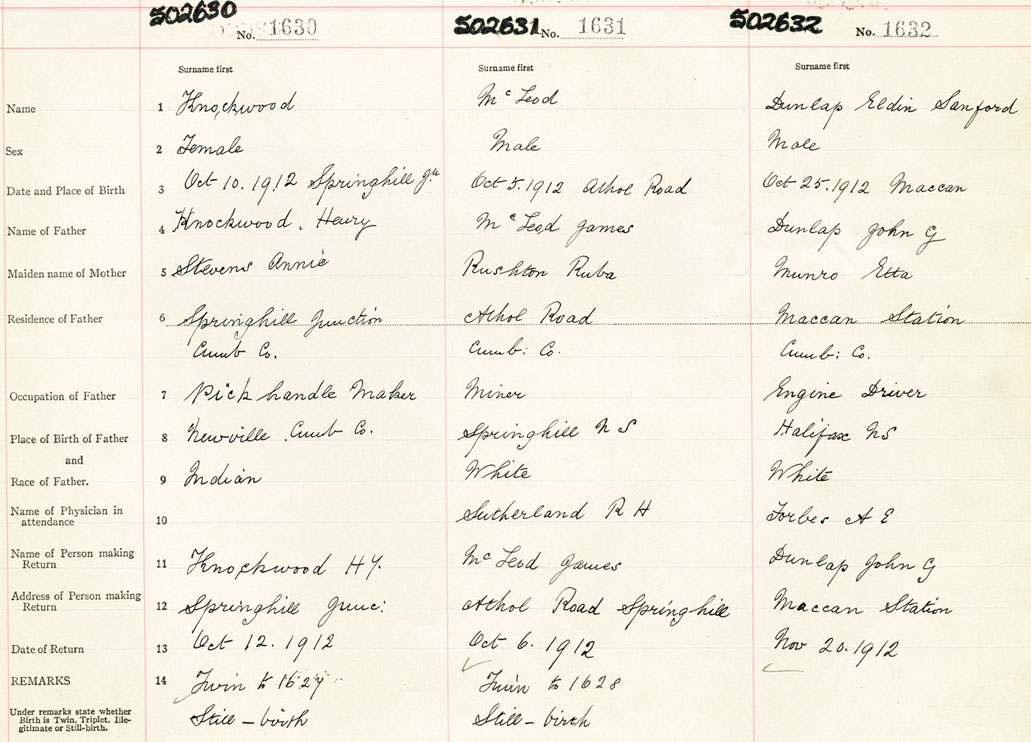 502630 No. 1630 502631 No. 1631 502632 No. 1632
Surname first Surname first Surname first
Name 1 Knockwood McLeod Dunlap Eldin Sanford
Sex 2 Female Male Male
Date and Place of Birth 3 Oct 10. 1912 Springhill Jn Oct 5. 1912 Athol Road Oct 25. 1912 Maccan
Name of Father 4 Knockwood. Henry McLeod James Dunlap John G
Maiden name of Mother 5 Stevens Annie Rushton Ruba Munro Etta
Residence of Father 6 Springhill Junction Athol Road Maccan Station
Cumb Co. Cumb: Co. Cumb: Co.
Occupation of Father 7 Pick handle Maker Miner Engine Driver
Place of Birth of Father 8 Newville Cumb Co. Springhill N S Halifax NS
and
Race of Father. 9 Indian White White
Name of Physician in
attendance 10 Sutherland R H Forbes A E
Name of Person making
Return 11 Knockwood HY. McLeod James Dunlap John G
Address of Person making
Return 12 Springhill Junc: Athol Road Springhill Maccan Station
Date of Return 13 Oct 12. 1912 Oct 6. 1912 Nov 20. 1912
REMARKS 14 Twin to 1627 Twin to 1628
Under remarks state whether
Birth is Twin, Triplet, Ille-
gitimate or Still-birth. Still-birth Still-birth